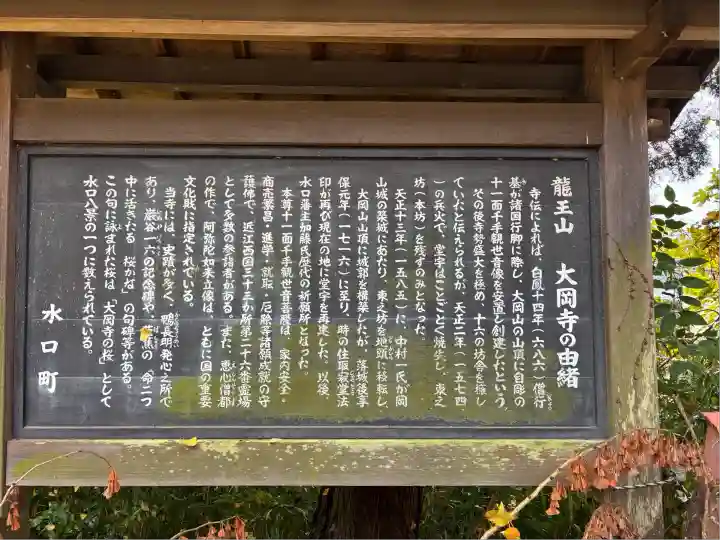 龍王山　大岡寺の由緒
寺伝によれば、白鳳十四年（六八六）僧行
基が諸国行脚に際し、大岡山の山頂に自彫の
十一面千手観世音像を安置し創建したという。
その後寺勢盛大を極め、十六の坊舎を擁し
ていたと伝えられるが、天正二年（一五七四
）の兵火で、堂宇はことごとく焼失し、東之
坊（本坊）を残すのみとなった。
天正十三年（一五八五）に、中村一氏が岡
山城の築城にあたり、東之坊を地頭に移転し、
大岡山山頂に城郭を構築したが、落城後享
保元年（一七一六）に至り、時の住職寂堂法
印が再び現在の地に堂宇を再建した。以後、
水口藩主加藤氏歴代の祈願所となった。
本尊十一面千手観世音菩薩は、家内安全・
商売繁昌・進学・就職・厄除等諸願成就の守
護佛で、近江西国三十三か所第二十六番霊場
として多数の参詣者がある。また、恵心僧都
の作で、阿弥陀如来立像は、ともに国の重要
文化財に指定されている。
当寺には、史蹟が多く、鴨長明発心之所で
あり、巌谷一六の記念碑や、芭蕉の「命二つ
中に活きたる　桜かな」の句碑等がある。
この句に詠まれた桜は「大岡寺の桜」として
水口八景の一つに数えられている。
水口町